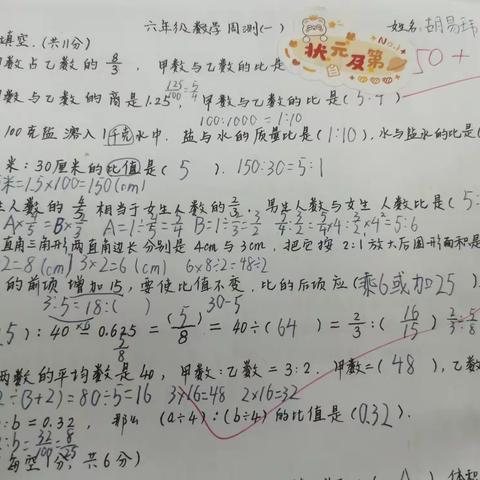 六年级数学周测(一) 姓名:胡易玮
填空.(共11分) 状元及第 No.1 50+
数占乙数的8/3, 甲数与乙数的比是
数与乙数的商是1.25, 125/100=5/4 甲数与乙数的比是(5:4)
100:1000=1:10
100克盐溶入1千克水中, 盐与水的质量比是(1:10), 水与盐水的比是(
米:30厘米的比值是(5). 150:30=5:1
米=1.5×100=150(cm)
生人数的4/5相当于女生人数的2/3, 男生人数与女生人数比是(5:
A×4/5=B×2/3 A=1÷4/5=5/4 B=1÷2/3=3/2 5/4:3/2=5/4×4:3/2×4=5:6
直角三角形两直角边长分别是4cm与3cm, 把它按2:1放大后图形面积是
2=8(cm) 3×2=6(cm) 6×8÷2=48÷2
的前项增加15, 要使比值不变, 比的后项应(乘6或加25)
3:5=18:( ) 30-5
5):40=0.625=(5)/8=40÷(64)=2/3:(16/15) 2/3÷5/8
5/8
两数的平均数是40, 甲数:乙数=3:2. 甲数=(48), 乙数
2÷(3+2)=80÷5=16 3×16=48 2×16=32
:b=0.32, 那么(a÷4):(b÷4)的比值是(0.32).
a:b=32/100=8/25
每空1分, 共6分)